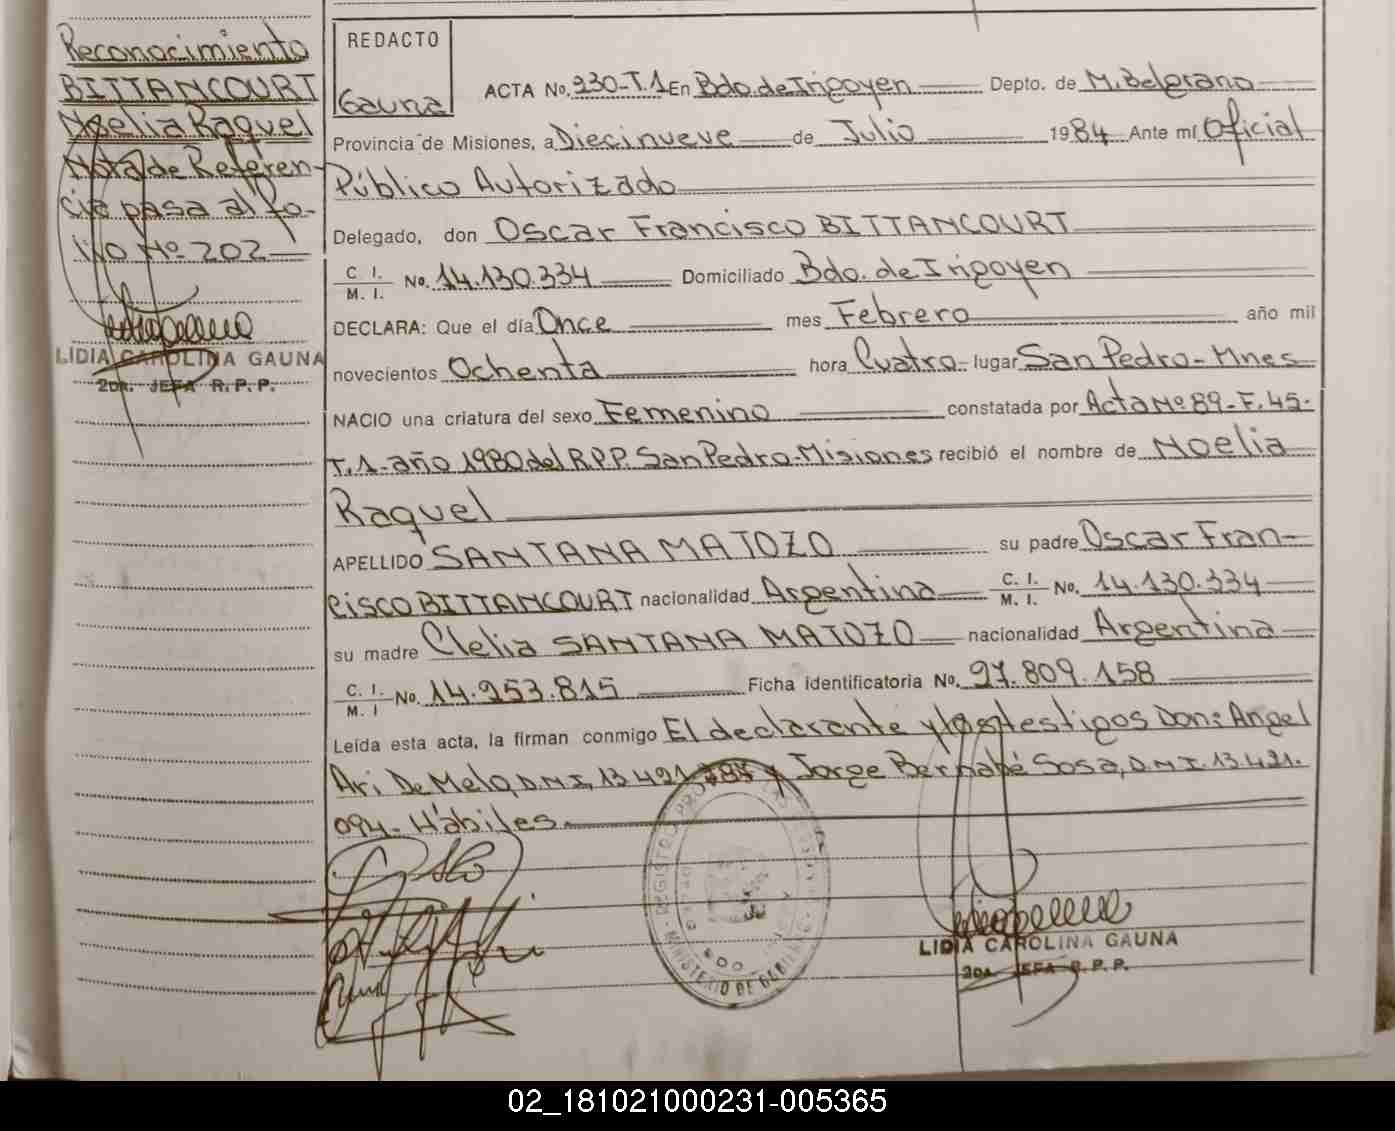 Reconocimiento
BITTANCOURT
Noelia Raquel
Nota de Referen-
cia pasa al fo-
lio Nº 202
LIDIA CAROLINA GAUNA
2da. JEFA R. P. P.
REDACTO
Gauna
ACTA No. 230-T.1 En Bdo. de Irigoyen Depto. de M. Belgrano
Provincia de Misiones, a Diecinueve de Julio 1984 Ante mí Oficial
Público Autorizado
Delegado, don Oscar Francisco BITTANCOURT
C. I.
M. I. No. 14.130.334 Domiciliado Bdo. de Irigoyen
DECLARA: Que el día Once mes Febrero año mil
novecientos Ochenta hora Cuatro- lugar San Pedro-Mnes
NACIO una criatura del sexo Femenino constatada por Acta Nº 89-F.45-
T.1-año 1980 del R.P.P. San Pedro-Misiones recibió el nombre de Noelia
Raquel
APELLIDO SANTANA MATOZO su padre Oscar Fran-
cisco BITTANCOURT nacionalidad Argentina C. I. M. I. No. 14.130.334
su madre Clelia SANTANA MATOZO nacionalidad Argentina
C. I.
M. I No. 14.253.815 Ficha identificatoria No. 27.809.158
Leída esta acta, la firman conmigo El declarante y los testigos Don: Angel
Ari De Melo, D.M.I. 13.421. y Jorge Bernabé Sosa, D.M.I. 13.421.
094- Hábiles.
MINISTERIO DE GOBIERNO
LIDIA CAROLINA GAUNA
2da. JEFA R. P. P.
02_181021000231-005365